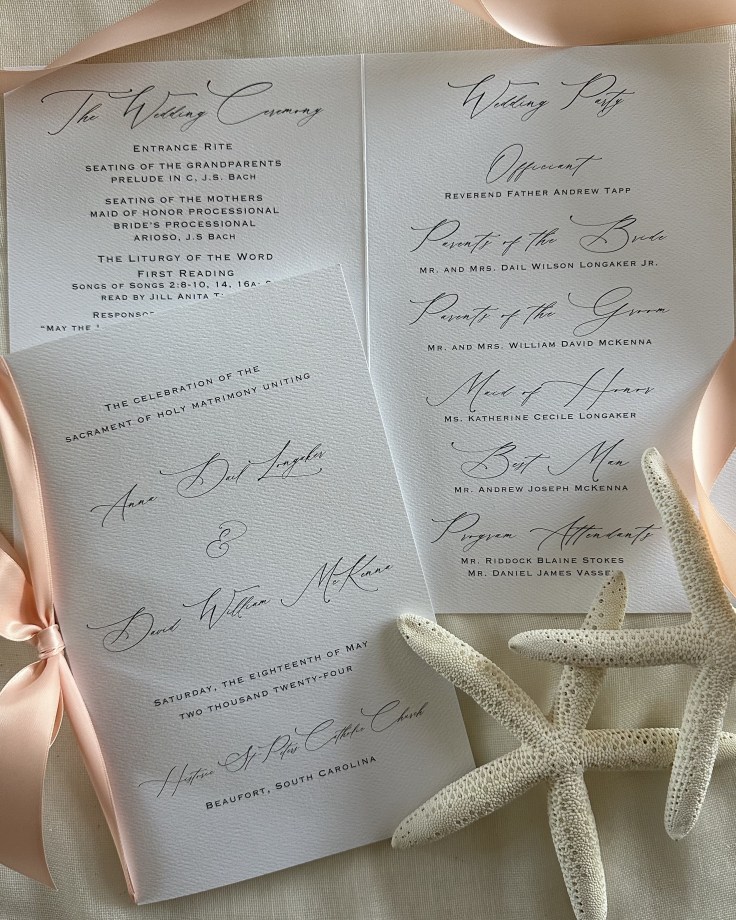 The Wedding Ceremony
Entrance Rite
Seating of the Grandparents
Prelude in C, J.S. Bach
Seating of the Mothers
Maid of Honor Processional
Bride's Processional
Arioso, J.S Bach
The Liturgy of the Word
First Reading
Songs of Songs 2:8-10, 14, 16a
Read by Jill Anita
"May the
Wedding Party
Officiant
Reverend Father Andrew Tapp
Parents of the Bride
Mr. and Mrs. Dail Wilson Longaker Jr.
Parents of the Groom
Mr. and Mrs. William David McKenna
Maid of Honor
Ms. Katherine Cecile Longaker
Best Man
Mr. Andrew Joseph McKenna
Program Attendants
Mr. Riddock Blaine Stokes
Mr. Daniel James Vassey
The celebration of the
sacrament of holy matrimony uniting
Anna Dail Longaker
&
David William McKenna
Saturday, the eighteenth of May
two thousand twenty-four
Historic St Peter's Catholic Church
Beaufort, South Carolina